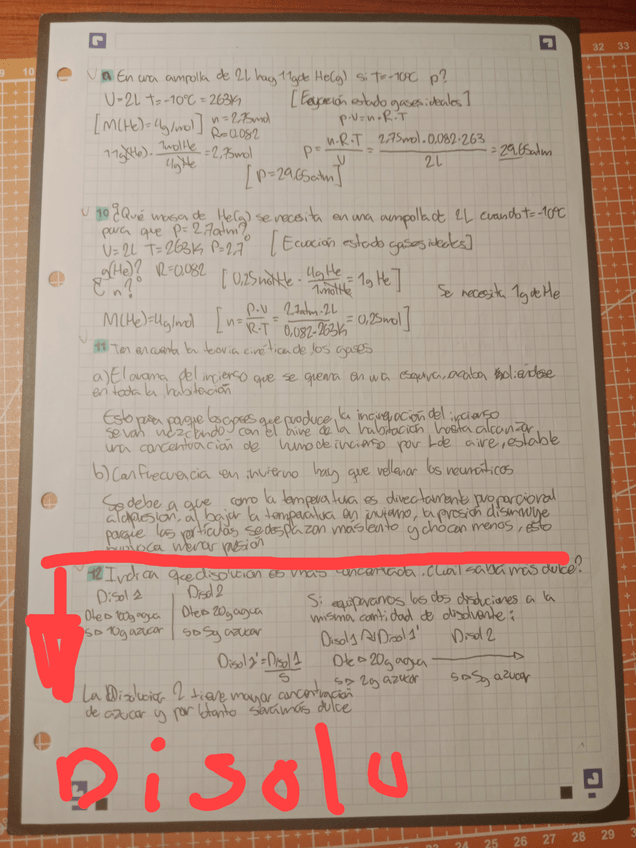 9 En una ampolla de 2L hay 11g de He(g) si T=-10°C p?
V=2L T=-10°C=263K [Ecuación estado gases ideales]
[M(He)=4g/mol] n=2,75mol p.V=n.R.T
R=0.082
11g(He)· 1molHe/4gHe =2,75mol p= n.R.T/V = 2,75mol.0,082.263/2L =29.65atm
[p=29,65atm]
10 ¿Qué masa de He(g) se necesita en una ampolla de 2L cuando t=-10°C
para que P=2,7atm?
V=2L T=263K P=2,7 [Ecuación estado gases ideales]
g(He)? R=0,082 [0,25molHe · 4gHe/1molHe =1gHe]
n? Se necesita 1g de He
M(He)=4g/mol [n= P.V/R.T = 2,7atm.2L/0,082.263K =0,25mol]
11 Ten en cuenta la teoria cinética de los gases
a) El aroma del incienso que se quema en una esquina, acaba oliéndose
en toda la habitación
Esto pasa porque los gases que produce, la incineración del incienso
se van mezclando con el aire de la habitación hasta alcanzar
una concentración de humo de incienso por L de aire, estable
b) Con frecuencia en invierno hay que rellenar los neumáticos
Se debe a que como la temperatura es directamente proporcional
a la presion, al bajar la temperatura en invierno, la presión disminuye
porque las partículas se desplazan mas lento y chocan menos, esto
provoca menor presion
12 Indica que disolucion es mas concentrada. Cual sabrá mas dulce?
Disol 1 Disol 2 Si equiparamos las dos disoluciones a la
Dte▷100g agua Dte▷20g agua misma cantidad de disolvente:
s▷10g azucar s▷5g azucar Disol1 Disol1' Disol 2
Disol 1'= Disol 1/5 Dte▷20g agua
s▷2g azucar s▷5g azucar
La Disolucion 2 tiene mayor concentración
de azucar y por lo tanto será más dulce
Disolu